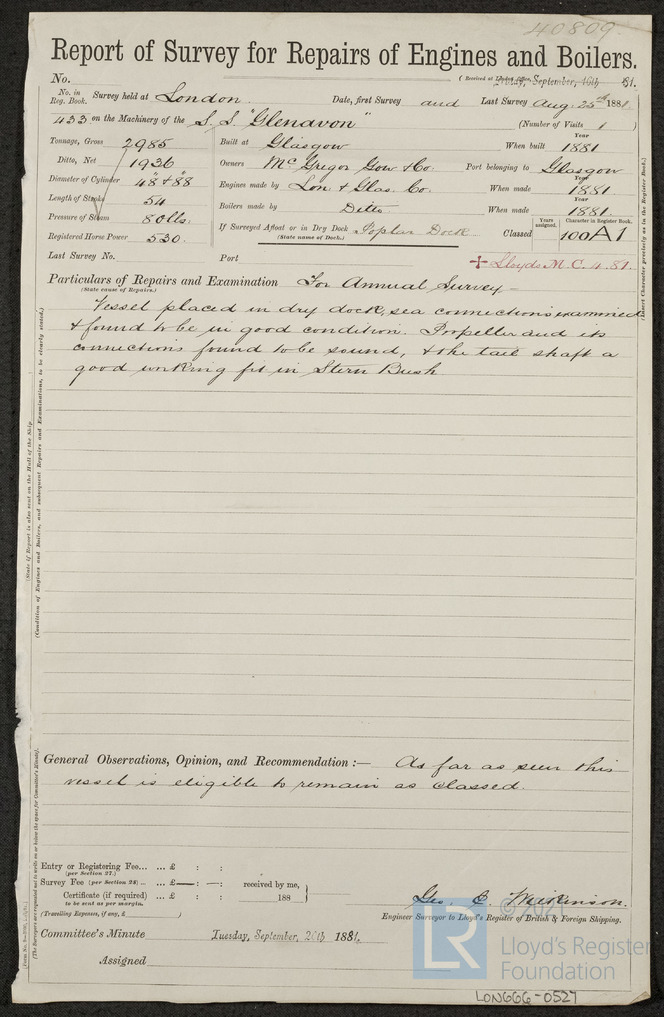 40809
Report of Survey for Repairs of Engines and Boilers.
No.
(Received at London Office, Friday, September, 16th 81.
No. in Reg. Book. Survey held at London Date, first Survey and Last Survey Aug. 25th 1881
433 on the Machinery of the S. S. "Glenavon" (Number of Visits 1 )
Tonnage, Gross 2985 Built at Glasgow When built Year 1881
Ditto, Net 1936 Owners McGregor Gow & Co. Port belonging to Glasgow
Diameter of Cylinder 48 & 88 Engines made by Lon. & Glas. Co. When made Year 1881
Length of Stroke 54 Boilers made by Ditto When made Year 1881.
Pressure of Steam 80 lbs. If Surveyed Afloat or in Dry Dock Poplar Dock
(State name of Dock.)
Classed Years assigned. Character in Register Book. 100A1
Registered Horse Power 530.
Last Survey No. Port + Lloyds M.C. 4.81.
Particulars of Repairs and Examination For Annual Survey-
(State cause of Repairs.)
Vessel placed in dry dock, sea connections examined
& found to be in good condition. Propeller and its
connections found to be sound, & the tail shaft a
good working fit in Stern Bush
General Observations, Opinion, and Recommendation :— As far as seen this
vessel is eligible to remain as classed.
Entry or Registering Fee... ... £ : :
(per Section 27.)
Survey Fee (per Section 28) .. ... £ — : — :
received by me,
Certificate (if required) ... £ : : 188
to be sent as per margin.
(Travelling Expenses, if any, £ )
Geo. C.
Engineer Surveyor to Lloyd's Register of British & Foreign Shipping.
Committee's Minute Tuesday, September, 20th 1881.
Assigned
(State if Report is also sent on the Hull of the Ship.
(Condition of Engines and Boilers, and subsequent Repairs and Examinations, to be clearly stated.)
(Insert Character precisely as in the Register Book.)
(The Surveyors are requested not to write on or below the space for Committee's Minute).
© 2021
LR
Lloyd's Register
Foundation
LON666-0527